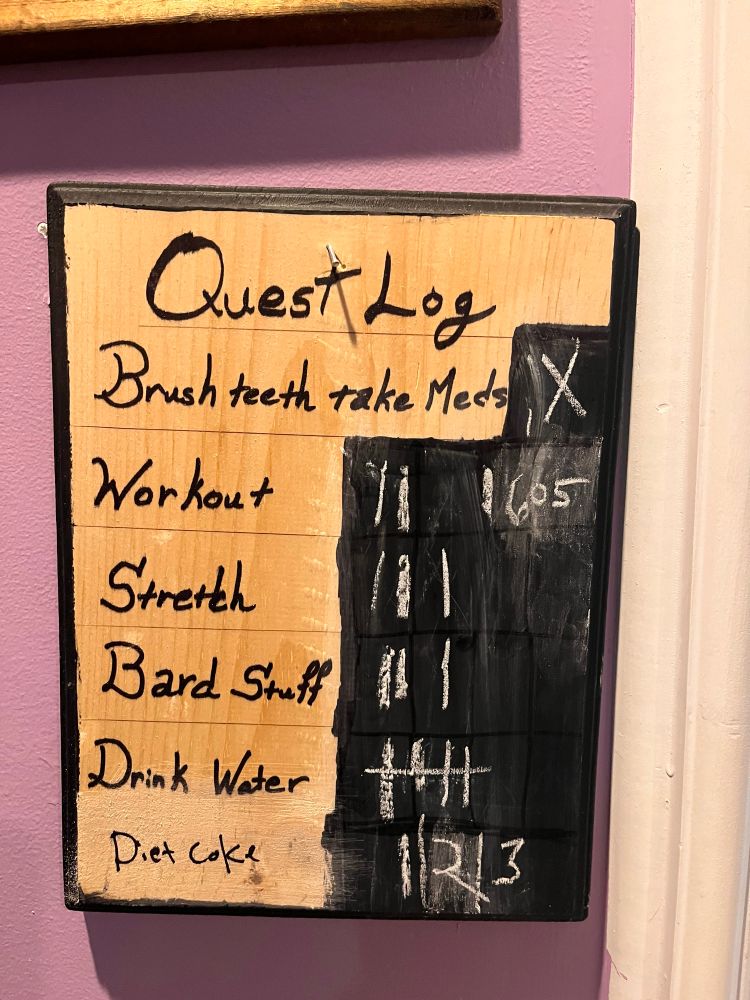 Quest Log
Brush teeth take Meds X
Workout 1605
Stretch
Bard Stuff
Drink Water
Diet Coke 1 2 3